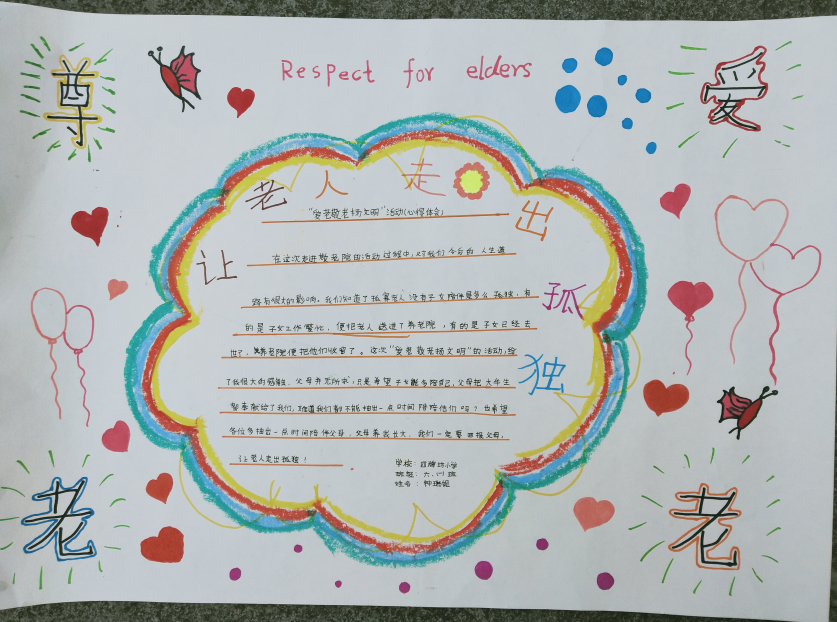 Respect for elders
尊
爱
让老人走出孤独
"爱老敬老杨文明"活动(心得体会)
在这次走进敬老院的活动过程中,对我们今后的人生道
路有很大的影响。我们知道了孤寡老人没有子女陪伴是多么孤独,有
的是子女工作繁忙,便把老人送进了养老院,有的是子女已经去
世了,养老院便把他们收留了。这次"爱老敬老杨文明"的活动,给
了我很大的感触,父母并无所求,只是希望子女能多陪自己,父母把大半生
都奉献给了我们,难道我们都不能抽出一点时间陪陪他们吗?也希望
各位多抽出一点时间陪伴父母,父母养我长大,我们一定要回报父母,
让老人走出孤独!
学校:牌坊小学
班级:六.(1)班
姓名:钟
老
老